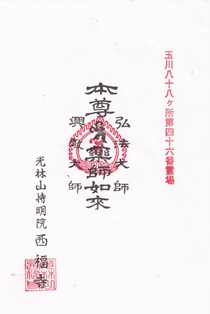 玉川八十八ヶ所第四十六番霊場
弘法大師
本尊 薬師如来
興教大師
光林山持明院 西福寺